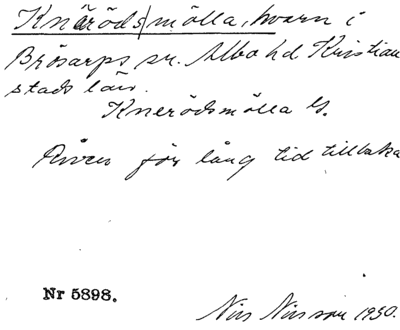 Knäröds/mölla, kvarn i
Brösarps sn. Albo hd. Kristian
stads län.
Knerödsmölla G.
Riven för lång tid tillbaka
Nr 5898.
Nils Nilsson 1930.